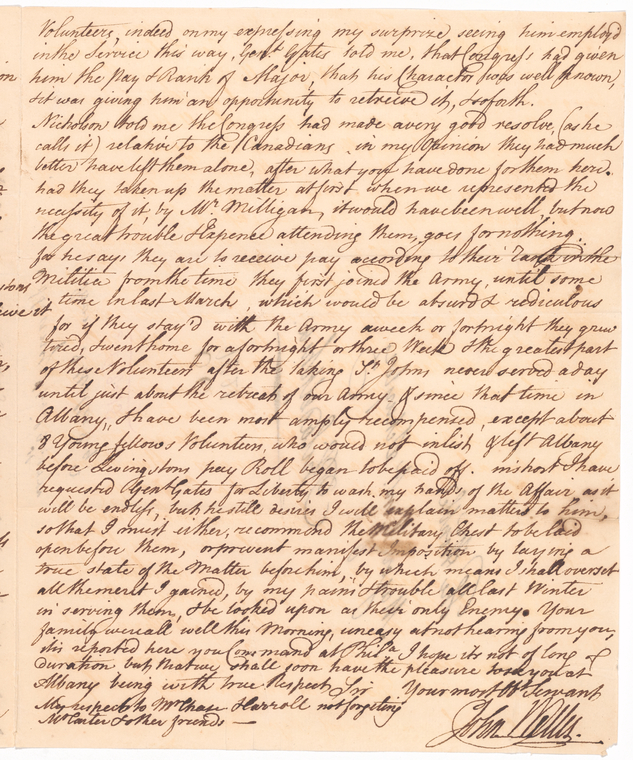 Volunteers, indeed on my expressing my surprize seeing him employd
in the Service this way, Genl. Gates told me, that Congress had given
him the Pay & Rank of Major, that his Charactor was well known,
& it was giving him an opportunity to retreive it, & soforth.
Nicholson told me the Congress had made a very good resolve, (as he
calls it) relative to the Canadians in my Opinion they had much
better have left them alone, after what you have done for them here.
had they taken up the matter at first when we represented the
necessity of it, by Mr. Milligan, it would have been well, but now
the great trouble & Expence attending them, goes for nothing.
for he says they are to receive pay according to their in the
Militia from the time they first joined the Army, until some
time in last March, which would be absurd & rediculous
for if they stay'd with the Army a week or fortnight they grew
tired, & went home for a fortnight or three Week & the greatest part
of these Volunteers after the taking St. Johns never served a day
until just about the retreat of our Army & since that time in
Albany, & have been most amply recompensed, except about
8 Young fellows Volunteers, who would not inlist & left Albany
before Livingstons pay Roll began to be paid off. in short I have
requested Genl. Gates for Liberty to wash my hands of the Affair, as it
will be endless, but he still desires I will explain matters to him,
so that I must either, recommend the Military Chest to be laid
open before them, or prevent manifest Imposition by laying a
true state of the Matter before him, by which means I shall overset
all the merit I gained, by my pains & trouble all last Winter
in serving them, & be looked upon as their only Enemy. Your
family were all well this Morning, uneasy at not hearing from you,
it is reported here you Command at Phila. I hope its not of long
duration but that we shall soon have the pleasure to see you at
Albany being with true Respect Sir Your most Servant
My respects to Mr. Chase & Carroll not forgeting
Mr. Carter & other friends — John